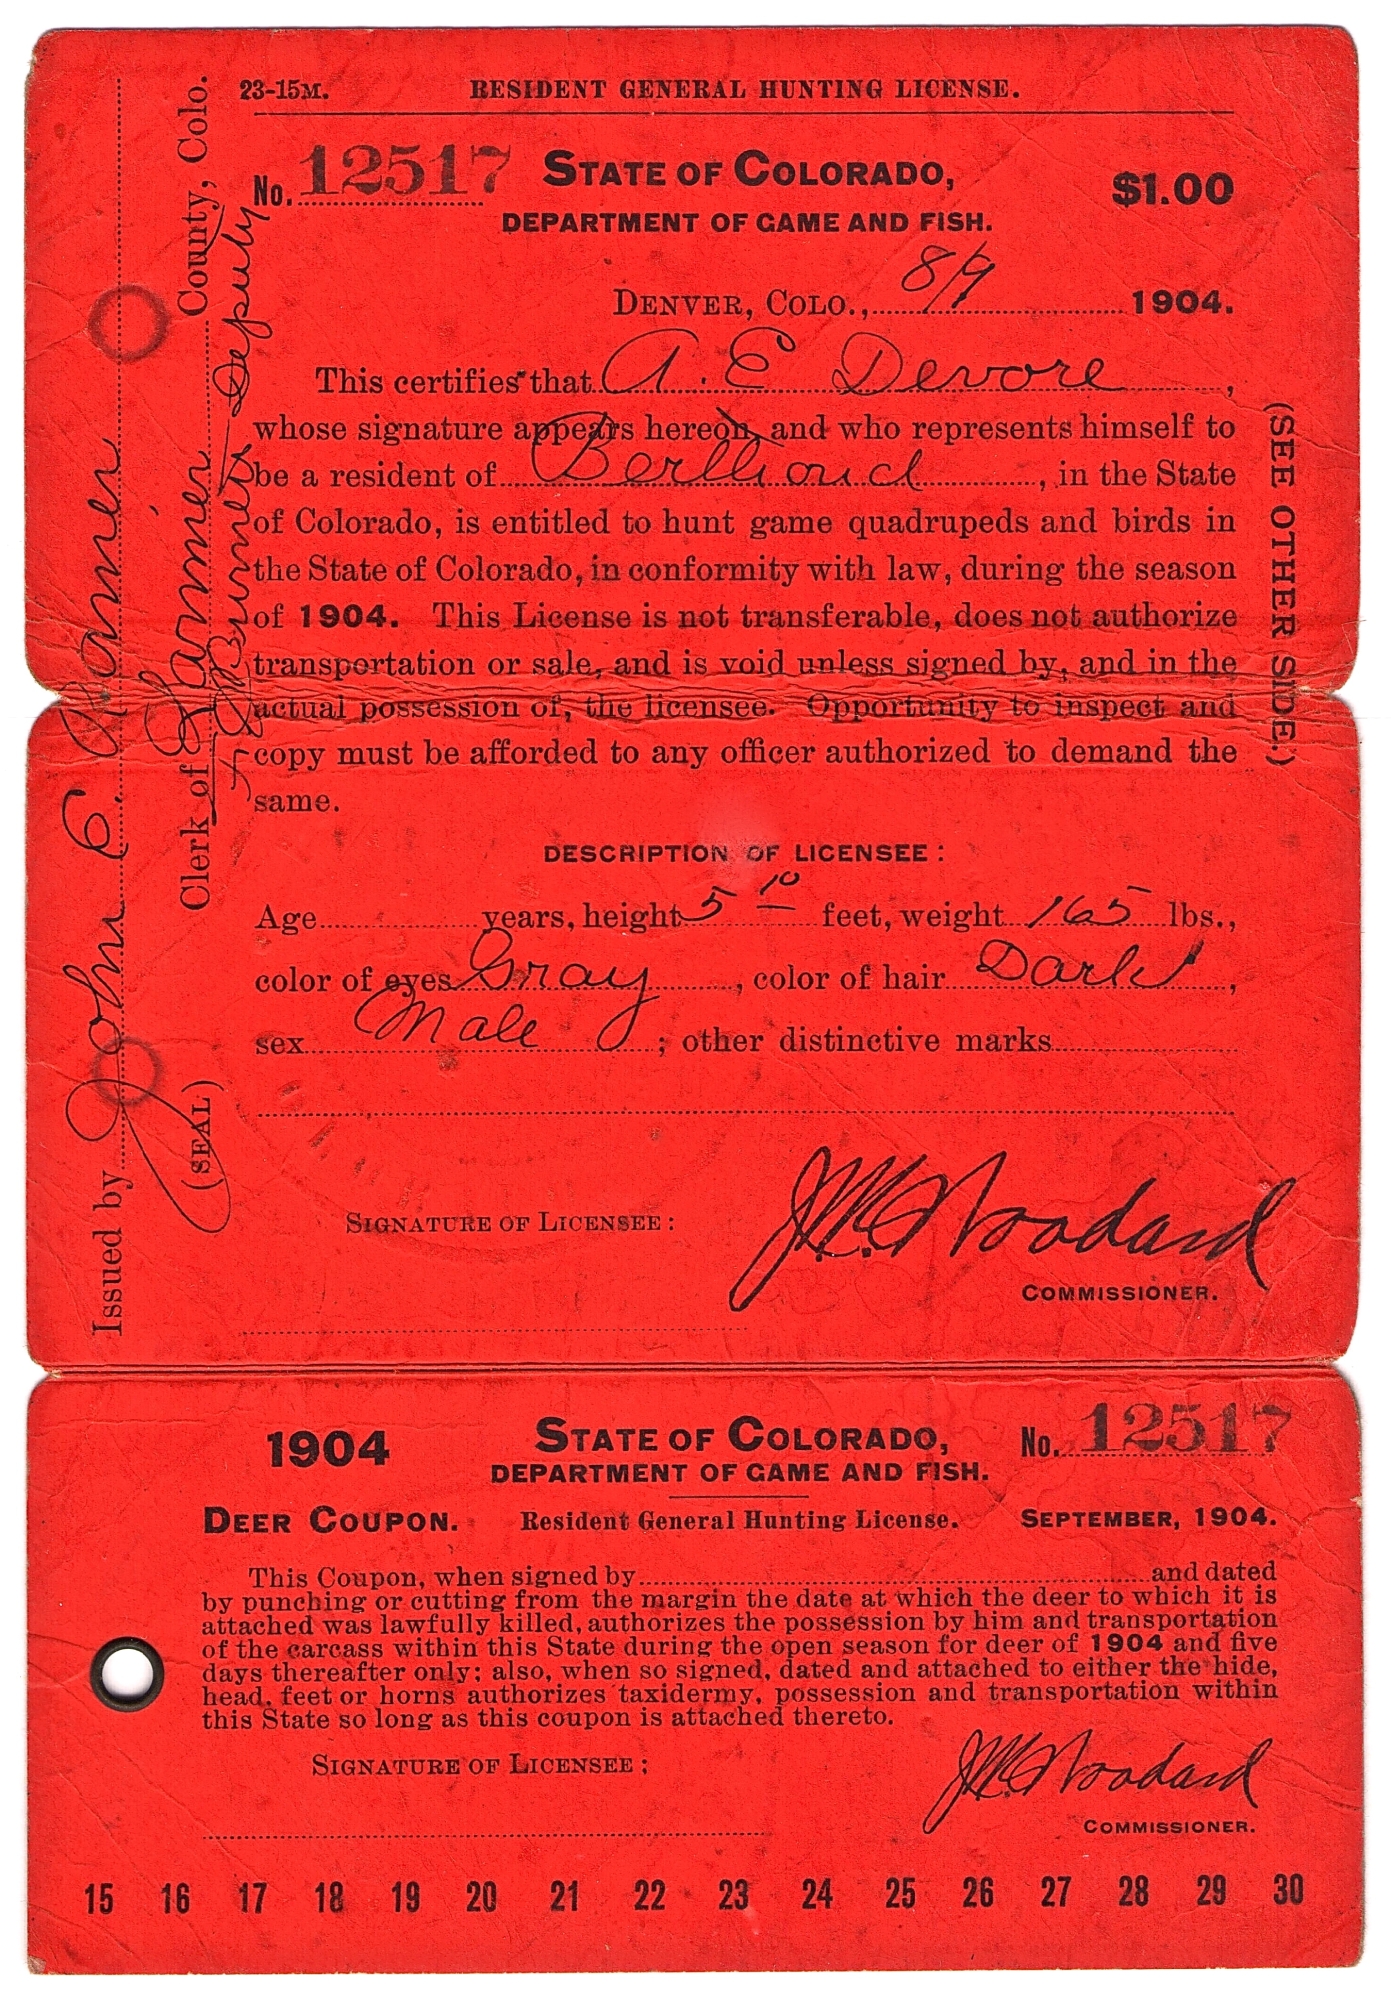 23-15M. RESIDENT GENERAL HUNTING LICENSE.
No. 12517 STATE OF COLORADO, $1.00
DEPARTMENT OF GAME AND FISH.
DENVER, COLO., 8/9 1904.
This certifies that A. E Devore,
whose signature appears hereon, and who represents himself to
be a resident of Berthoud, in the State
of Colorado, is entitled to hunt game quadrupeds and birds in
the State of Colorado, in conformity with law, during the season
of 1904. This License is not transferable, does not authorize
transportation or sale, and is void unless signed by, and in the
actual possession of, the licensee. Opportunity to inspect and
copy must be afforded to any officer authorized to demand the
same.
DESCRIPTION OF LICENSEE:
Age years, height 5 10 feet, weight 165 lbs.,
color of eyes Gray, color of hair Dark,
sex Male; other distinctive marks
SIGNATURE OF LICENSEE:
J M Woodard
COMMISSIONER.
Issued by John C.
Clerk of Larimer County, Colo.
Deputy
(SEAL)
(SEE OTHER SIDE.)
1904 STATE OF COLORADO, No. 12517
DEPARTMENT OF GAME AND FISH.
DEER COUPON. Resident General Hunting License. SEPTEMBER, 1904.
This Coupon, when signed by and dated
by punching or cutting from the margin the date at which the deer to which it is
attached was lawfully killed, authorizes the possession by him and transportation
of the carcass within this State during the open season for deer of 1904 and five
days thereafter only; also, when so signed, dated and attached to either the hide,
head, feet or horns authorizes taxidermy, possession and transportation within
this State so long as this coupon is attached thereto.
SIGNATURE OF LICENSEE:
J M Woodard
COMMISSIONER.
15 16 17 18 19 20 21 22 23 24 25 26 27 28 29 30